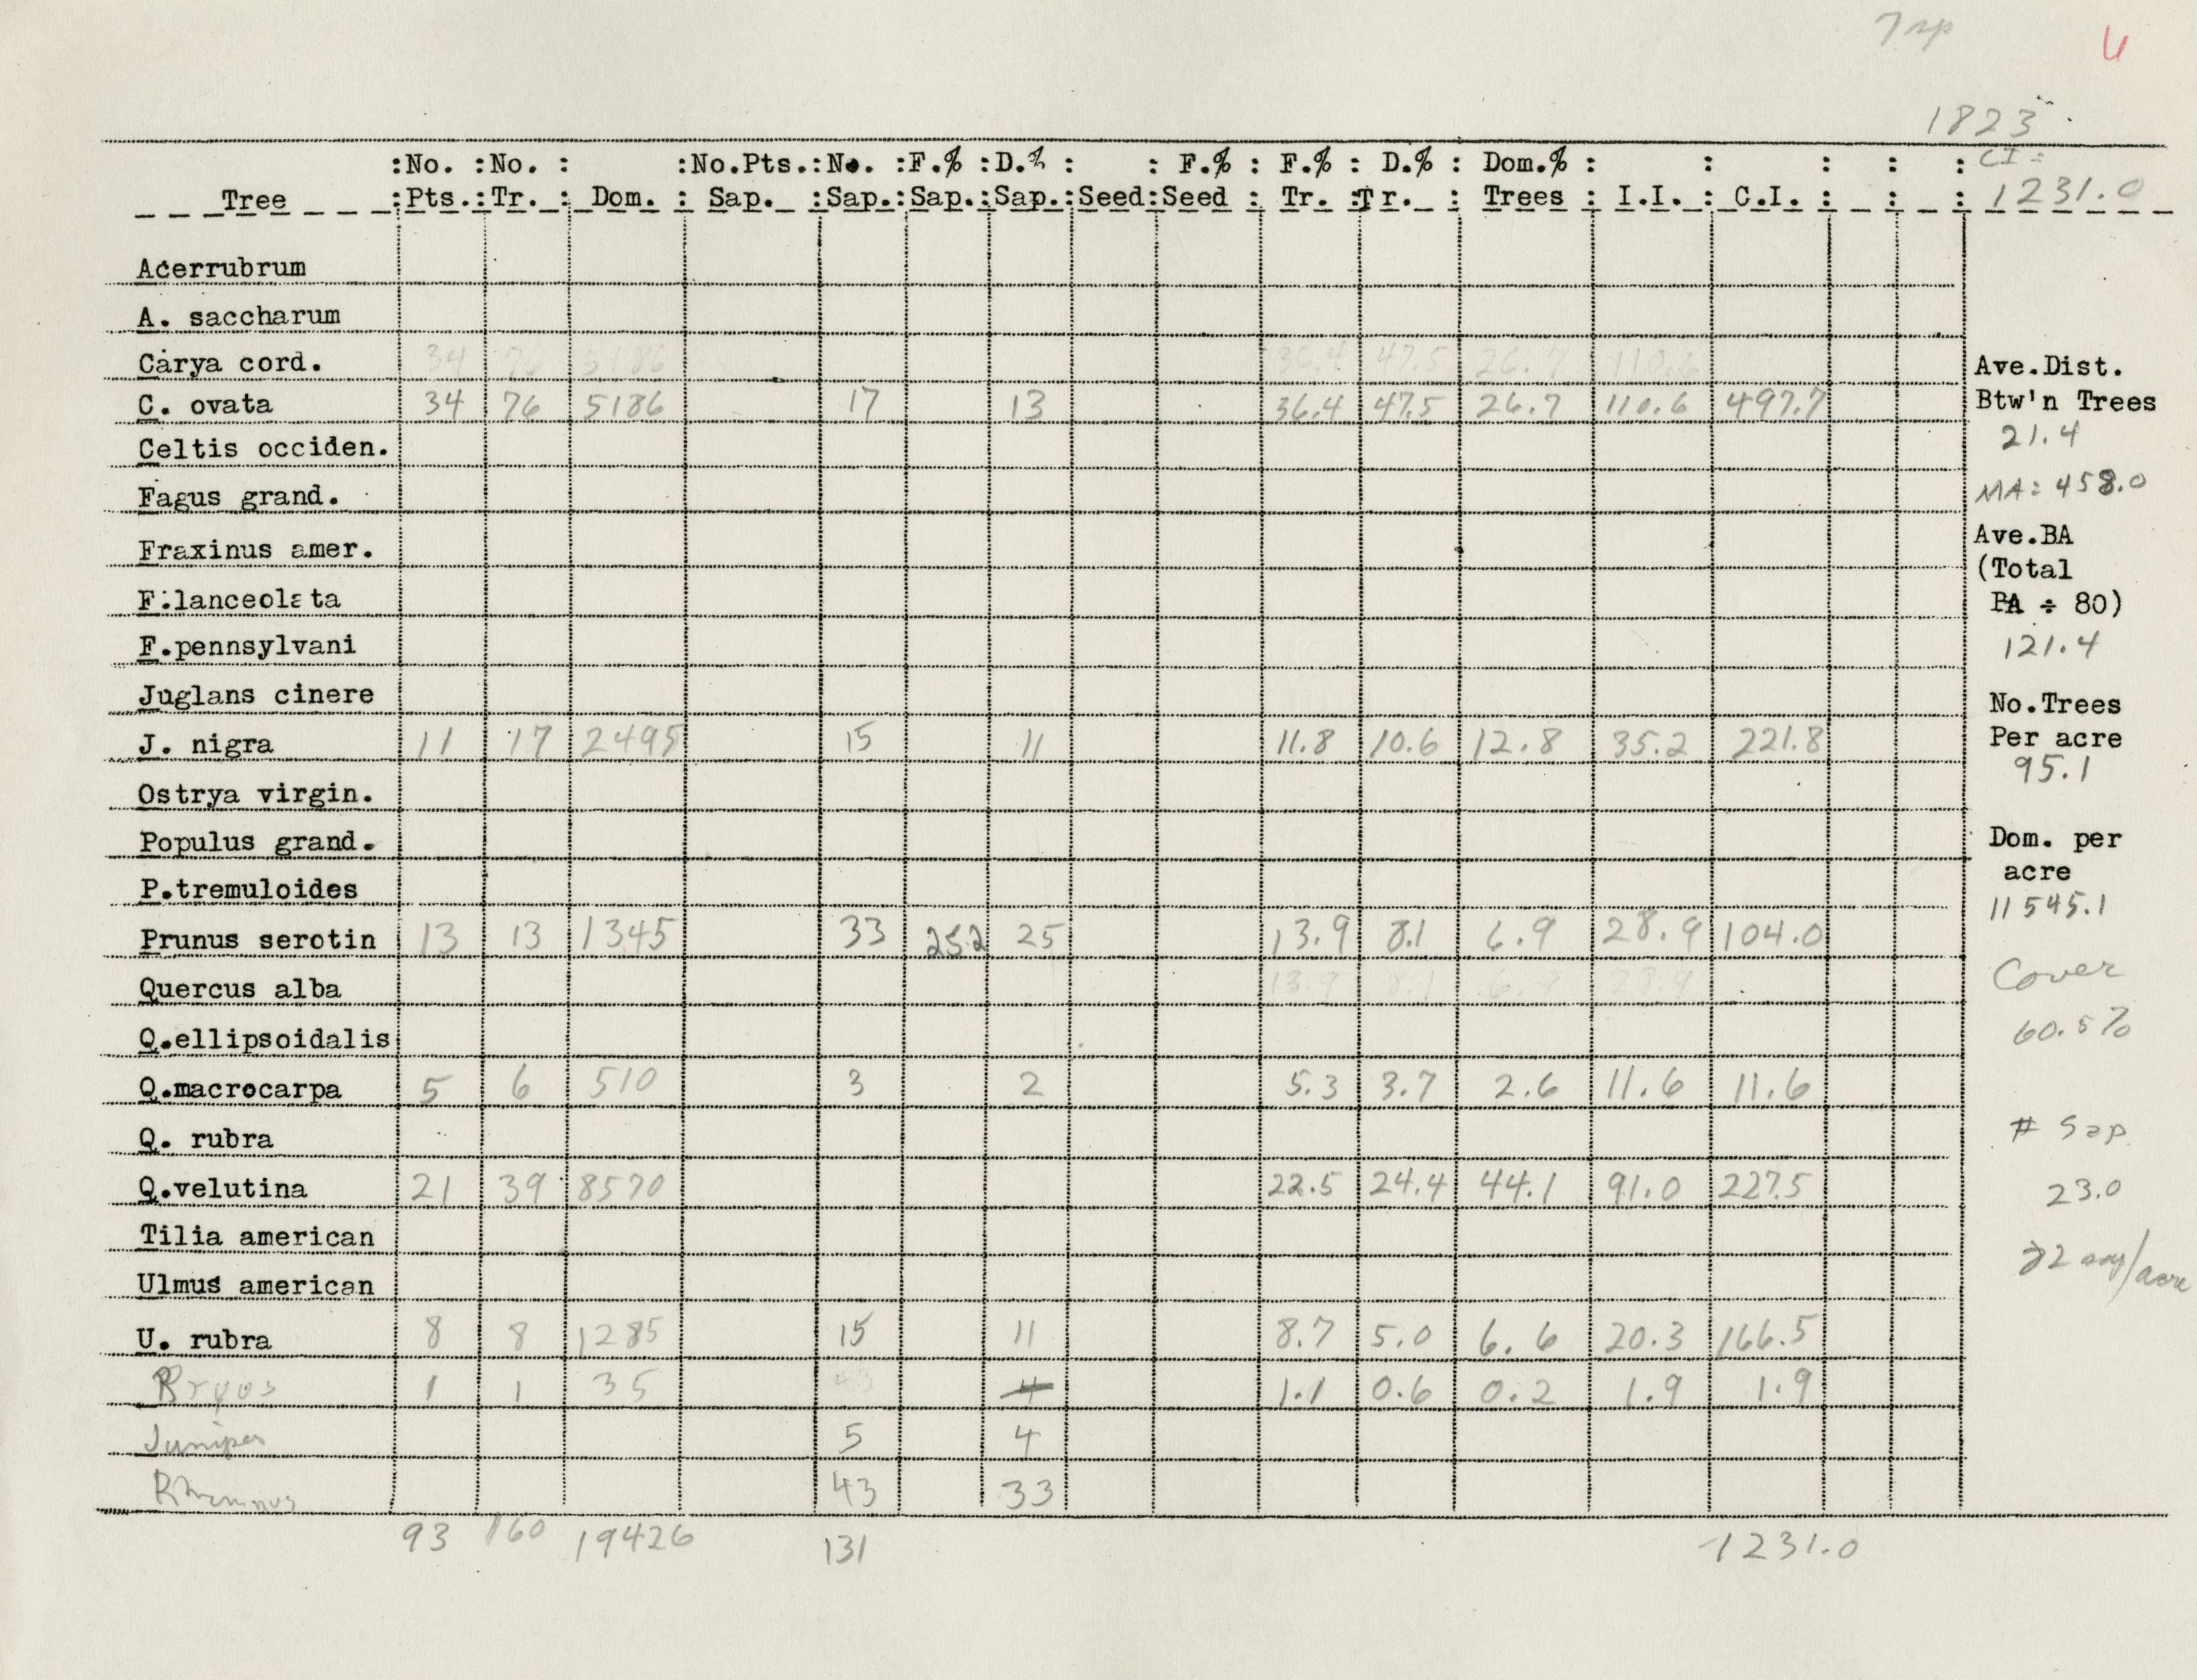 7 sp
U
1823
CI =
1231.0
:No. :No. : :No.Pts.:No. :F.% :D.% : : F.% : F.% : D.% : Dom.% : : : : :
Tree :Pts.:Tr. : Dom. : Sap. :Sap.:Sap.:Sap.:Seed:Seed : Tr. :Tr. : Trees : I.I. : C.I. : : :
Acerrubrum
A. saccharum
Carya cord. 34 76 5186 36.4 47.5 26.7 110.6
C. ovata 34 76 5186 17 13 36.4 47.5 26.7 110.6 497.7
Celtis occiden.
Fagus grand.
Fraxinus amer.
F.lanceolata
F.pennsylvani
Juglans cinere
J. nigra 11 17 2495 15 11 11.8 10.6 12.8 35.2 221.8
Ostrya virgin.
Populus grand.
P.tremuloides
Prunus serotin 13 13 1345 33 25.2 25 13.9 8.1 6.9 28.9 104.0
Quercus alba 13.9 8.1 6.9 28.9
Q.ellipsoidalis
Q.macrocarpa 5 6 510 3 2 5.3 3.7 2.6 11.6 11.6
Q. rubra
Q.velutina 21 39 8570 22.5 24.4 44.1 91.0 227.5
Tilia american
Ulmus american
U. rubra 8 8 1285 15 11 8.7 5.0 6.6 20.3 166.5
1 1 35 43 4 1.1 0.6 0.2 1.9 1.9
Juniper 5 4
Rhamnus 43 33
93 160 19426 131 1231.0
Ave.Dist.
Btw'n Trees
21.4
MA: 458.0
Ave.BA
(Total
BA ÷ 80)
121.4
No.Trees
Per acre
95.1
Dom. per
acre
11545.1
Cover
60.5%
# Sap
23.0
22 sap/acre